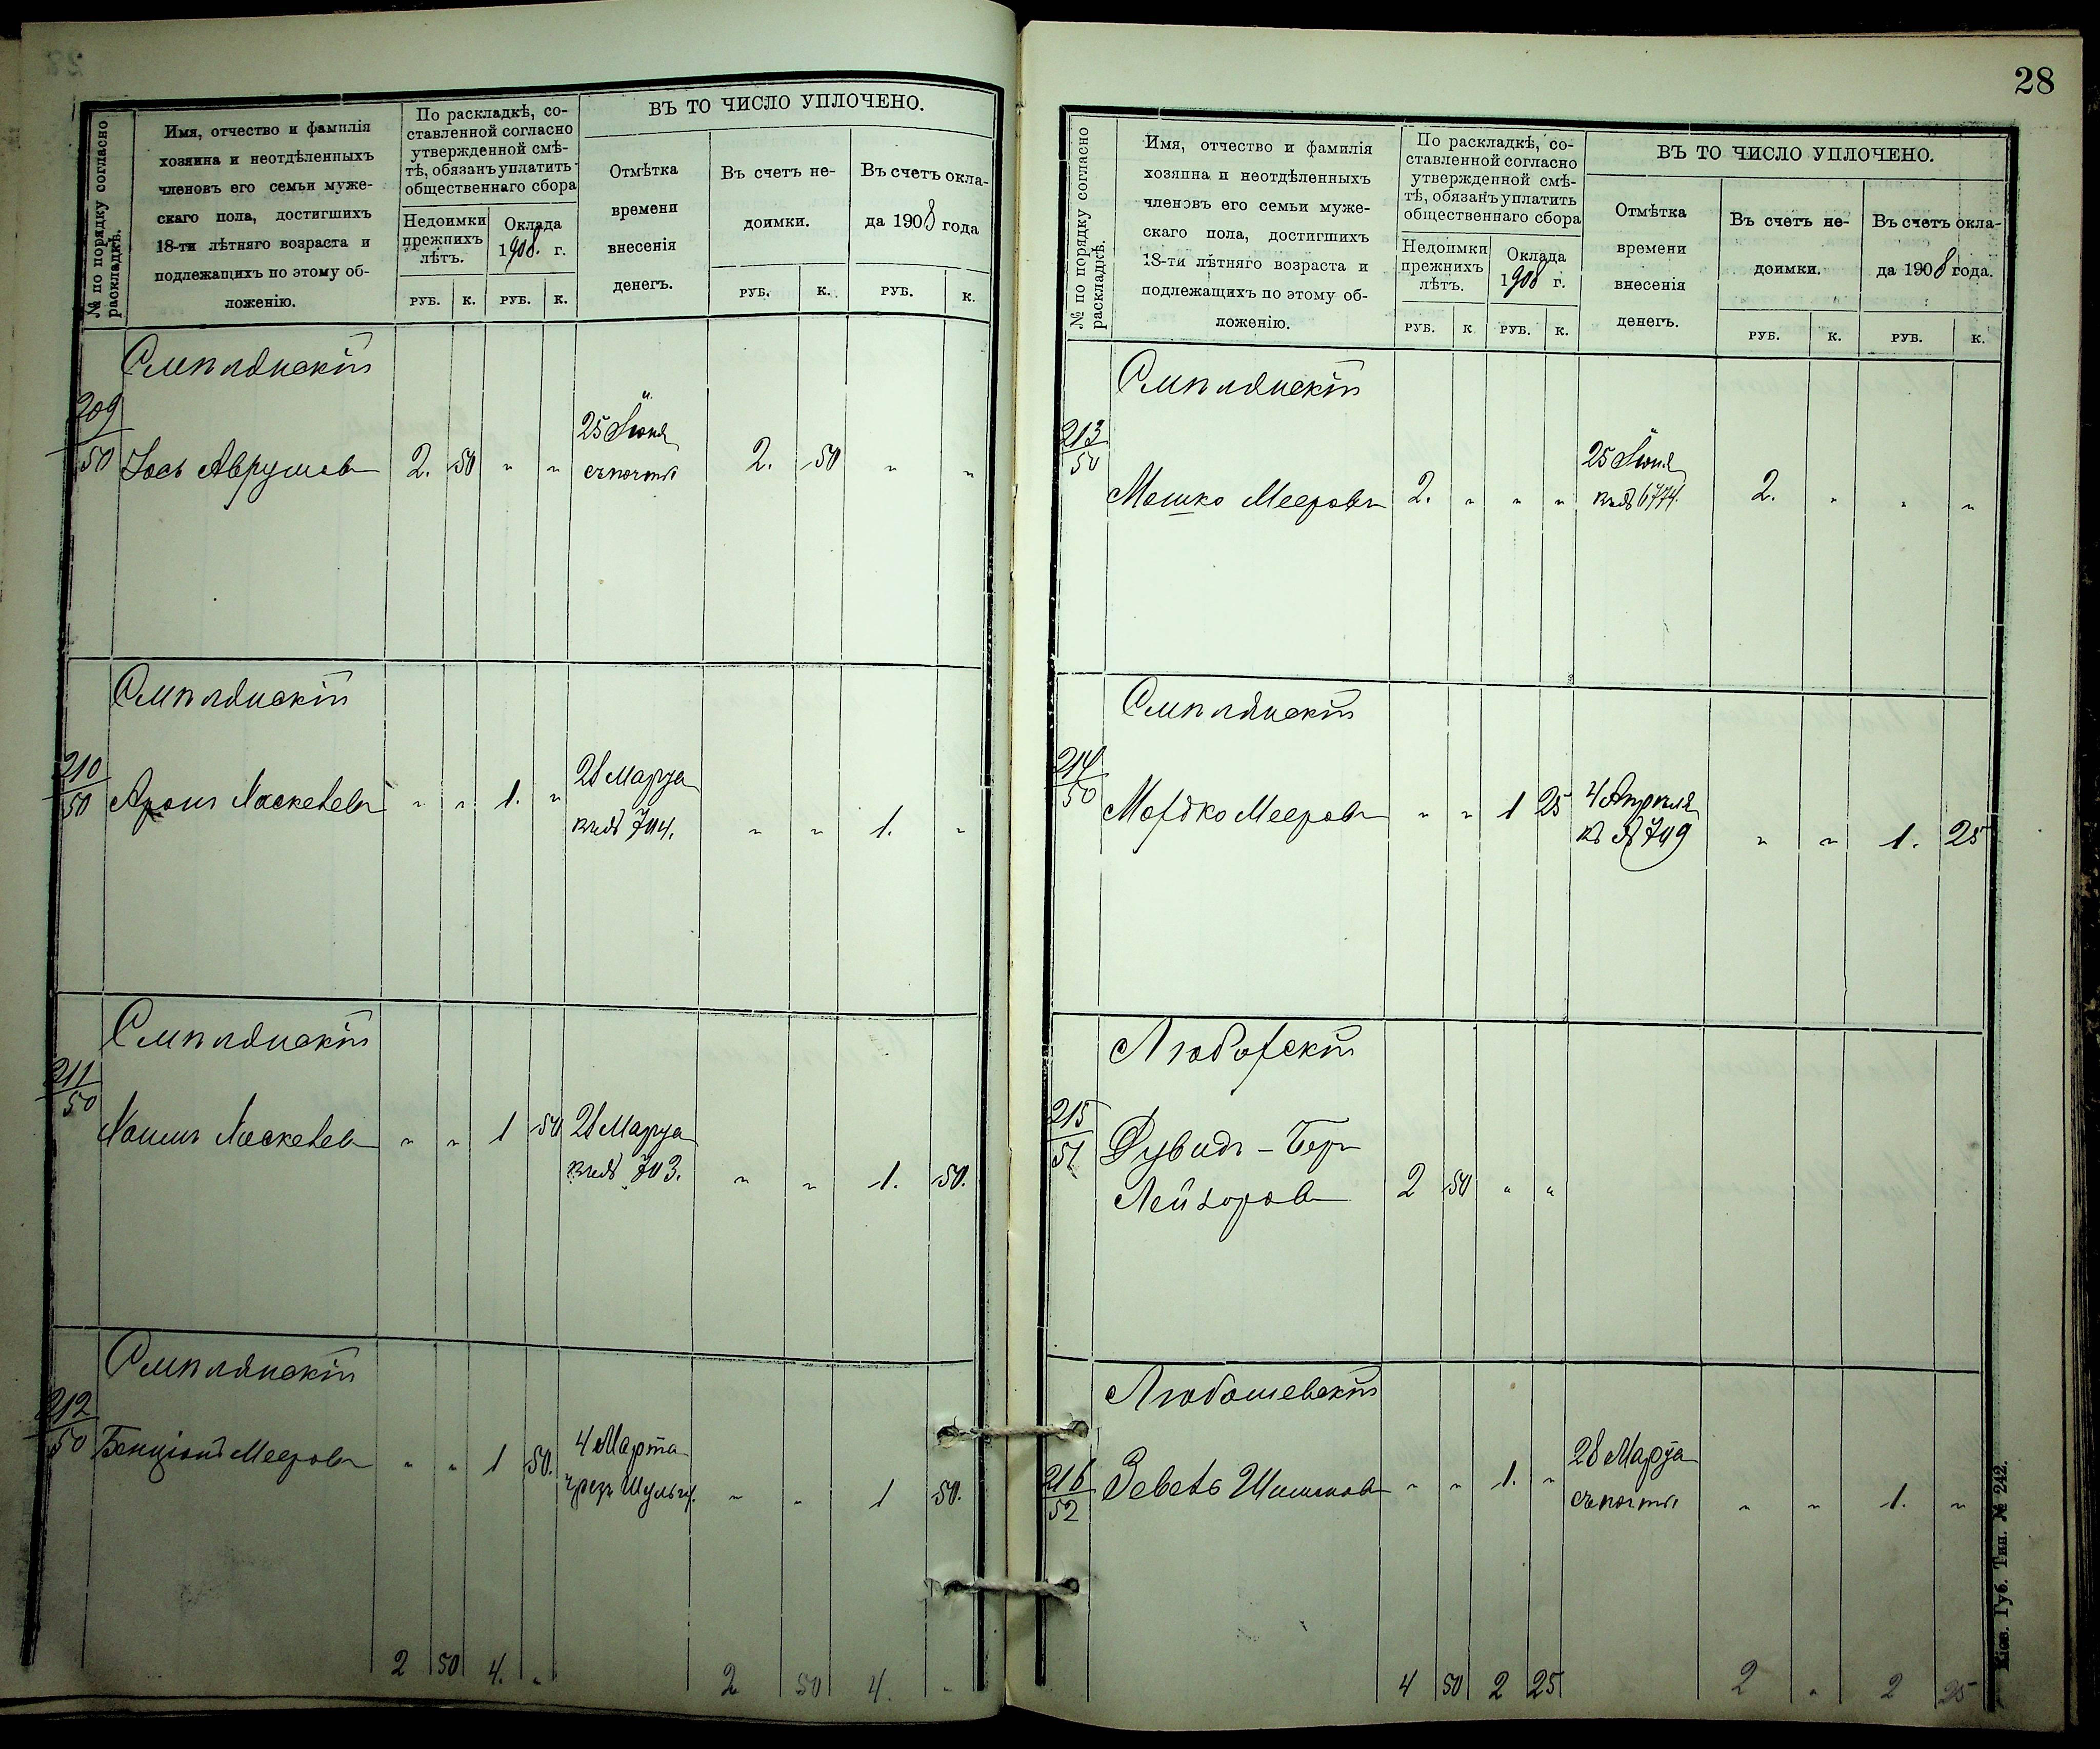 № по порядку согласно раскладкѣ.
Имя, отчество и фамилія
хозяина и неотдѣленныхъ
членовъ его семьи муже-
скаго пола, достигшихъ
18-ти лѣтняго возраста и
подлежащихъ по этому об-
ложенію.
По раскладкѣ, со-
ставленной согласно
утвержденной смѣ-
тѣ, обязанъ уплатить
общественнаго сбора
Недоимки
прежнихъ
лѣтъ.
Оклада
1908. г.
РУБ. К. РУБ. К.
ВЪ ТО ЧИСЛО УПЛОЧЕНО.
Отмѣтка
времени
внесенія
денегъ.
Въ счетъ не-
доимки.
Въ счетъ окла-
да 1908 года
РУБ. К. РУБ. К.
Смилянскій
209/50 Іось Аврумов 2. 50 " " 25 Іюня 2. 50 " "
съ почты
Смилянскій
210/50 Аронъ " " 1. " 28 Марта
704. " " 1. "
Смилянскій
211/50 " " 1 50 28 Марта
703. " " 1. 50.
Смилянскій
212/50 Бенціонъ Мееров " " 1 50. 4 Марта
чрезъ " " 1 50.
2 50 4. " 2 50 4. "
28
№ по порядку согласно раскладкѣ.
Имя, отчество и фамилія
хозяина и неотдѣленныхъ
членовъ его семьи муже-
скаго пола, достигшихъ
18-ти лѣтняго возраста и
подлежащихъ по этому об-
ложенію.
По раскладкѣ, со-
ставленной согласно
утвержденной смѣ-
тѣ, обязанъ уплатить
общественнаго сбора
Недоимки
прежнихъ
лѣтъ.
Оклада
1908 г.
РУБ. К РУБ. К.
ВЪ ТО ЧИСЛО УПЛОЧЕНО.
Отмѣтка
времени
внесенія
денегъ.
Въ счетъ не-
доимки.
Въ счетъ окла-
да 1908 года.
РУБ. К. РУБ. К.
Смилянскій
213/50 25 Іюня
Мошко Мееров 2. " " " 6774. 2. " " "
Смилянскій
214/50 Мордко Мееров " " 1 25 4 Апрѣля
кв № 709 " " 1. 25
Любарскій
215/51 Дувидъ-Бер
Лейзоров 2 50 " "
Любошевскій
216/52 " " 1. " 28 Марта
съ почты " " 1. "
4 50 2 25 2 " 2 25
Кіев. Губ. Тип. № 242.